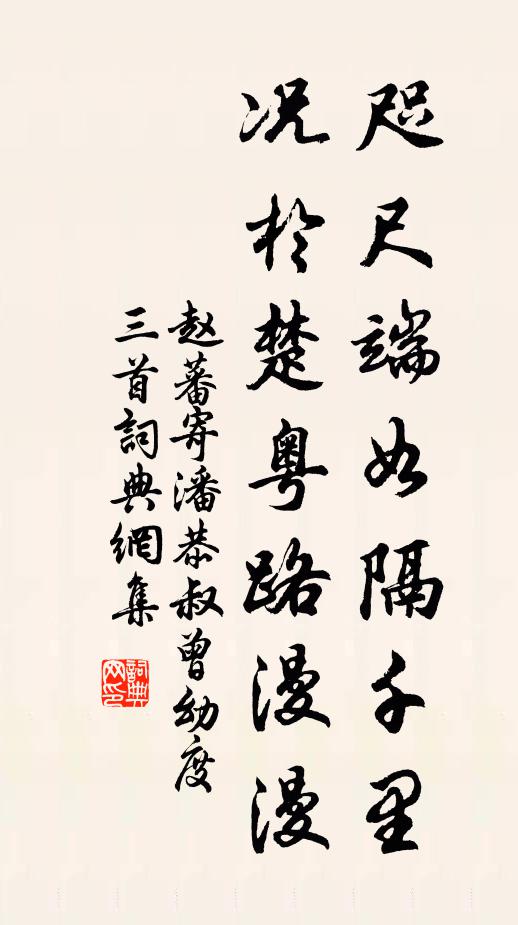 咫尺端如隔千里
况於楚粤路漫漫
赵蕃寄潘恭叔曾幼度
三首詞典網集
詞典
网印